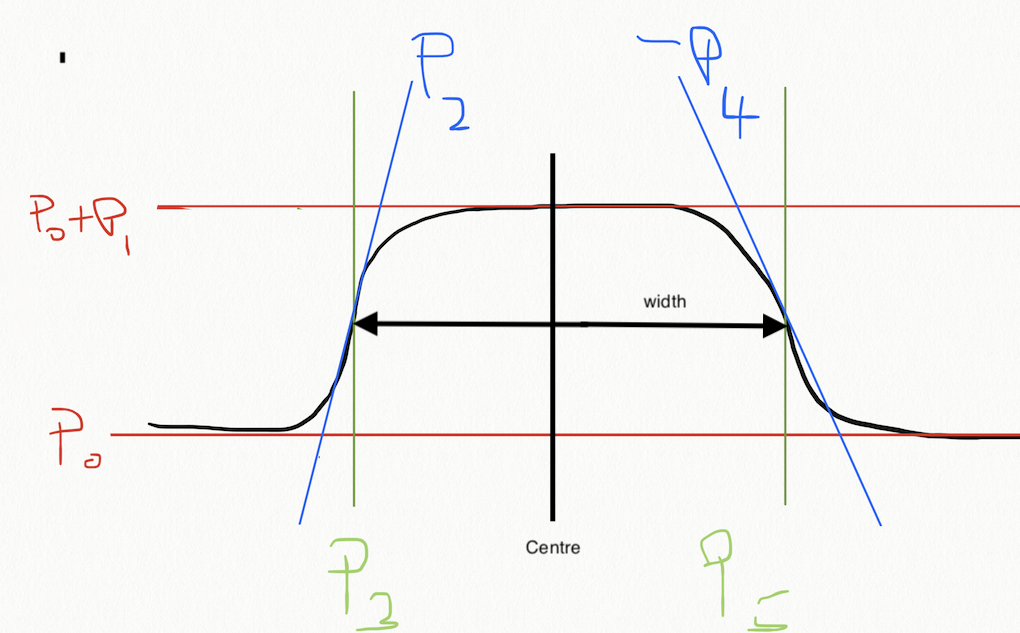 P2
-P4
P0+P1
width
P0
Centre
P3
P5